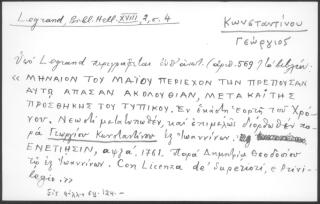 Legrand, Bibl. Hell. XVIII, 2, σ. 4
Κωνσταντίνου
Γεώργιος
Ὑπὸ Legrand περιγράφεται ὑπ' ἀριθ. 569 τὸ βιβλίον
« ΜΗΝΑΙΟΝ ΤΟΥ ΜΑΪΟΥ ΠΕΡΙΕΧΟΝ ΤΗΝ ΠΡΕΠΟΥΣΑΝ
ΑΥΤῼ ΑΠΑΣΑΝ ΑΚΟΛΟΥΘΙΑΝ, ΜΕΤΑ ΚΑΙ ΤΗΣ
ΠΡΟΣΘΗΚΗΣ ΤΟΥ ΤΥΠΙΚΟΥ. Ἐν ἑκάστῃ ἑορτῇ τοῦ Χρό-
νου. Νεωστὶ μετατυπωθέν, καὶ ἐπιμελῶς διορθωθὲν πα-
ρὰ Γεωργίου Κωνσταντίνου ἐξ Ἰωαννίνων.
ΕΝΕΤΙΗΣΙΝ, αψξα΄, 1761. Παρὰ Δημητρίῳ Θεοδοσίου
τῷ ἐξ Ἰωαννίνων. Con Licenza de' Superiori, e Privi-
legio. »